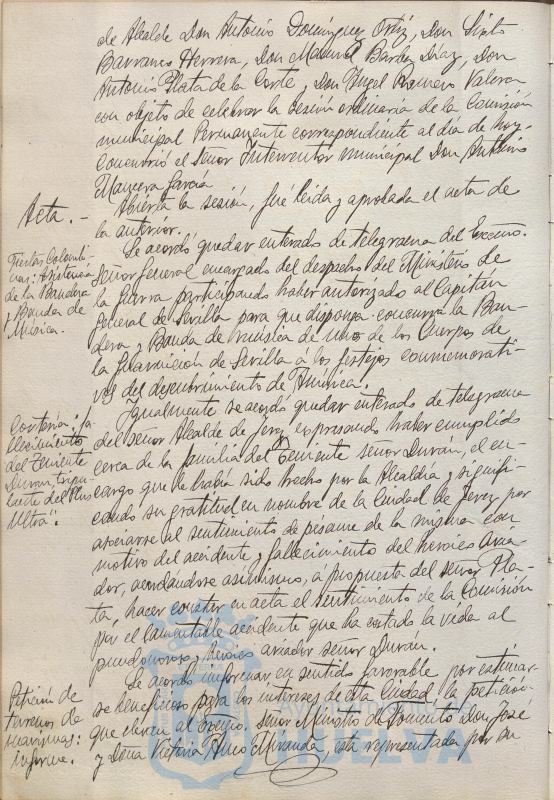 de Alcalde Don Antonio Domínguez Ortiz, Don Sixto
Barranco Herrera, Don Manuel Barba Díaz, Don
Antonio Plata de la Corte, Don Angel Romero Valera
con objeto de celebrar la sesión ordinaria de la Comisión
municipal Permanente correspondiente al día de hoy.
Concurrió el Señor Interventor municipal Don Antonio
Mancera García
Acta. -
Abierta la sesión, fué leida y aprobada el acta de
la anterior.
Fiestas Colombi-
nas: Asistencia
de la Bandera
y Banda de
Música.
Se acordó quedar enterado de telegrama del Excmo.
Señor General encargado del despacho del Ministerio de
la Guerra participando haber autorizado al Capitán
General de Sevilla para que disponga concurra la Ban-
dera y Banda de música de uno de los Cuerpos de
la Guarnición de Sevilla á los festejos conmemorati-
vos del descubrimiento de América.
Cortesía: fa-
llecimiento
del Teniente
Durán, tripu-
lante del "Plus
Ultra".
Igualmente se acordó quedar enterado de telegrama
del señor Alcalde de Jerez expresando haber cumplido
cerca de la familia del Teniente señor Durán, el en-
cargo que le había sido hecho por la Alcaldía y signifi-
cando su gratitud en nombre de la Ciudad de Jerez por
asociarse al sentimiento de pesame de la misma con
motivo del accidente y fallecimiento del heroico avia-
dor, acordándose asimismo, á propuesta del señor Pla-
ta, hacer constar en acta el sentimiento de la Comisión
por el lamentable accidente que ha costado la vida al
pundonoroso y heroico aviador señor Durán.
Petición de
terrenos de
marismas:
informe.
Se acordó informar en sentido favorable por estimar-
se beneficioso para los intereses de esta Ciudad la petición
que elevan al Excmo. Señor Ministro de Fomento Don José
y Doña Victoria Miranda, esta representada por su
Ayuntamiento de
HUELVA